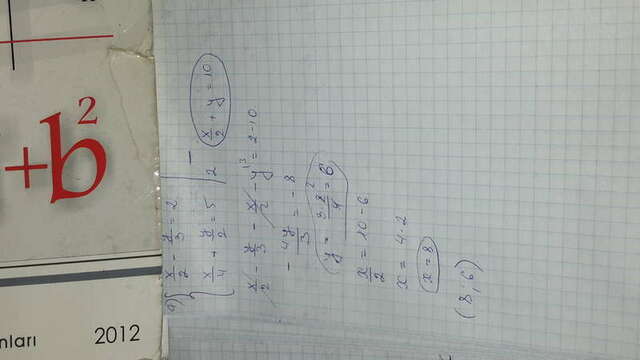 +b²
nları 2012
a) { x/2 - y/3 = 2
x/4 + y/2 = 5 | 2 x/2 + y = 10
x/2 - y/3 - x/2 - y = 2 - 10
- 4y/3 = -8
y = 3·8/4 = 6
x/2 = 10 - 6
x = 4·2
x = 8
(8; 6)